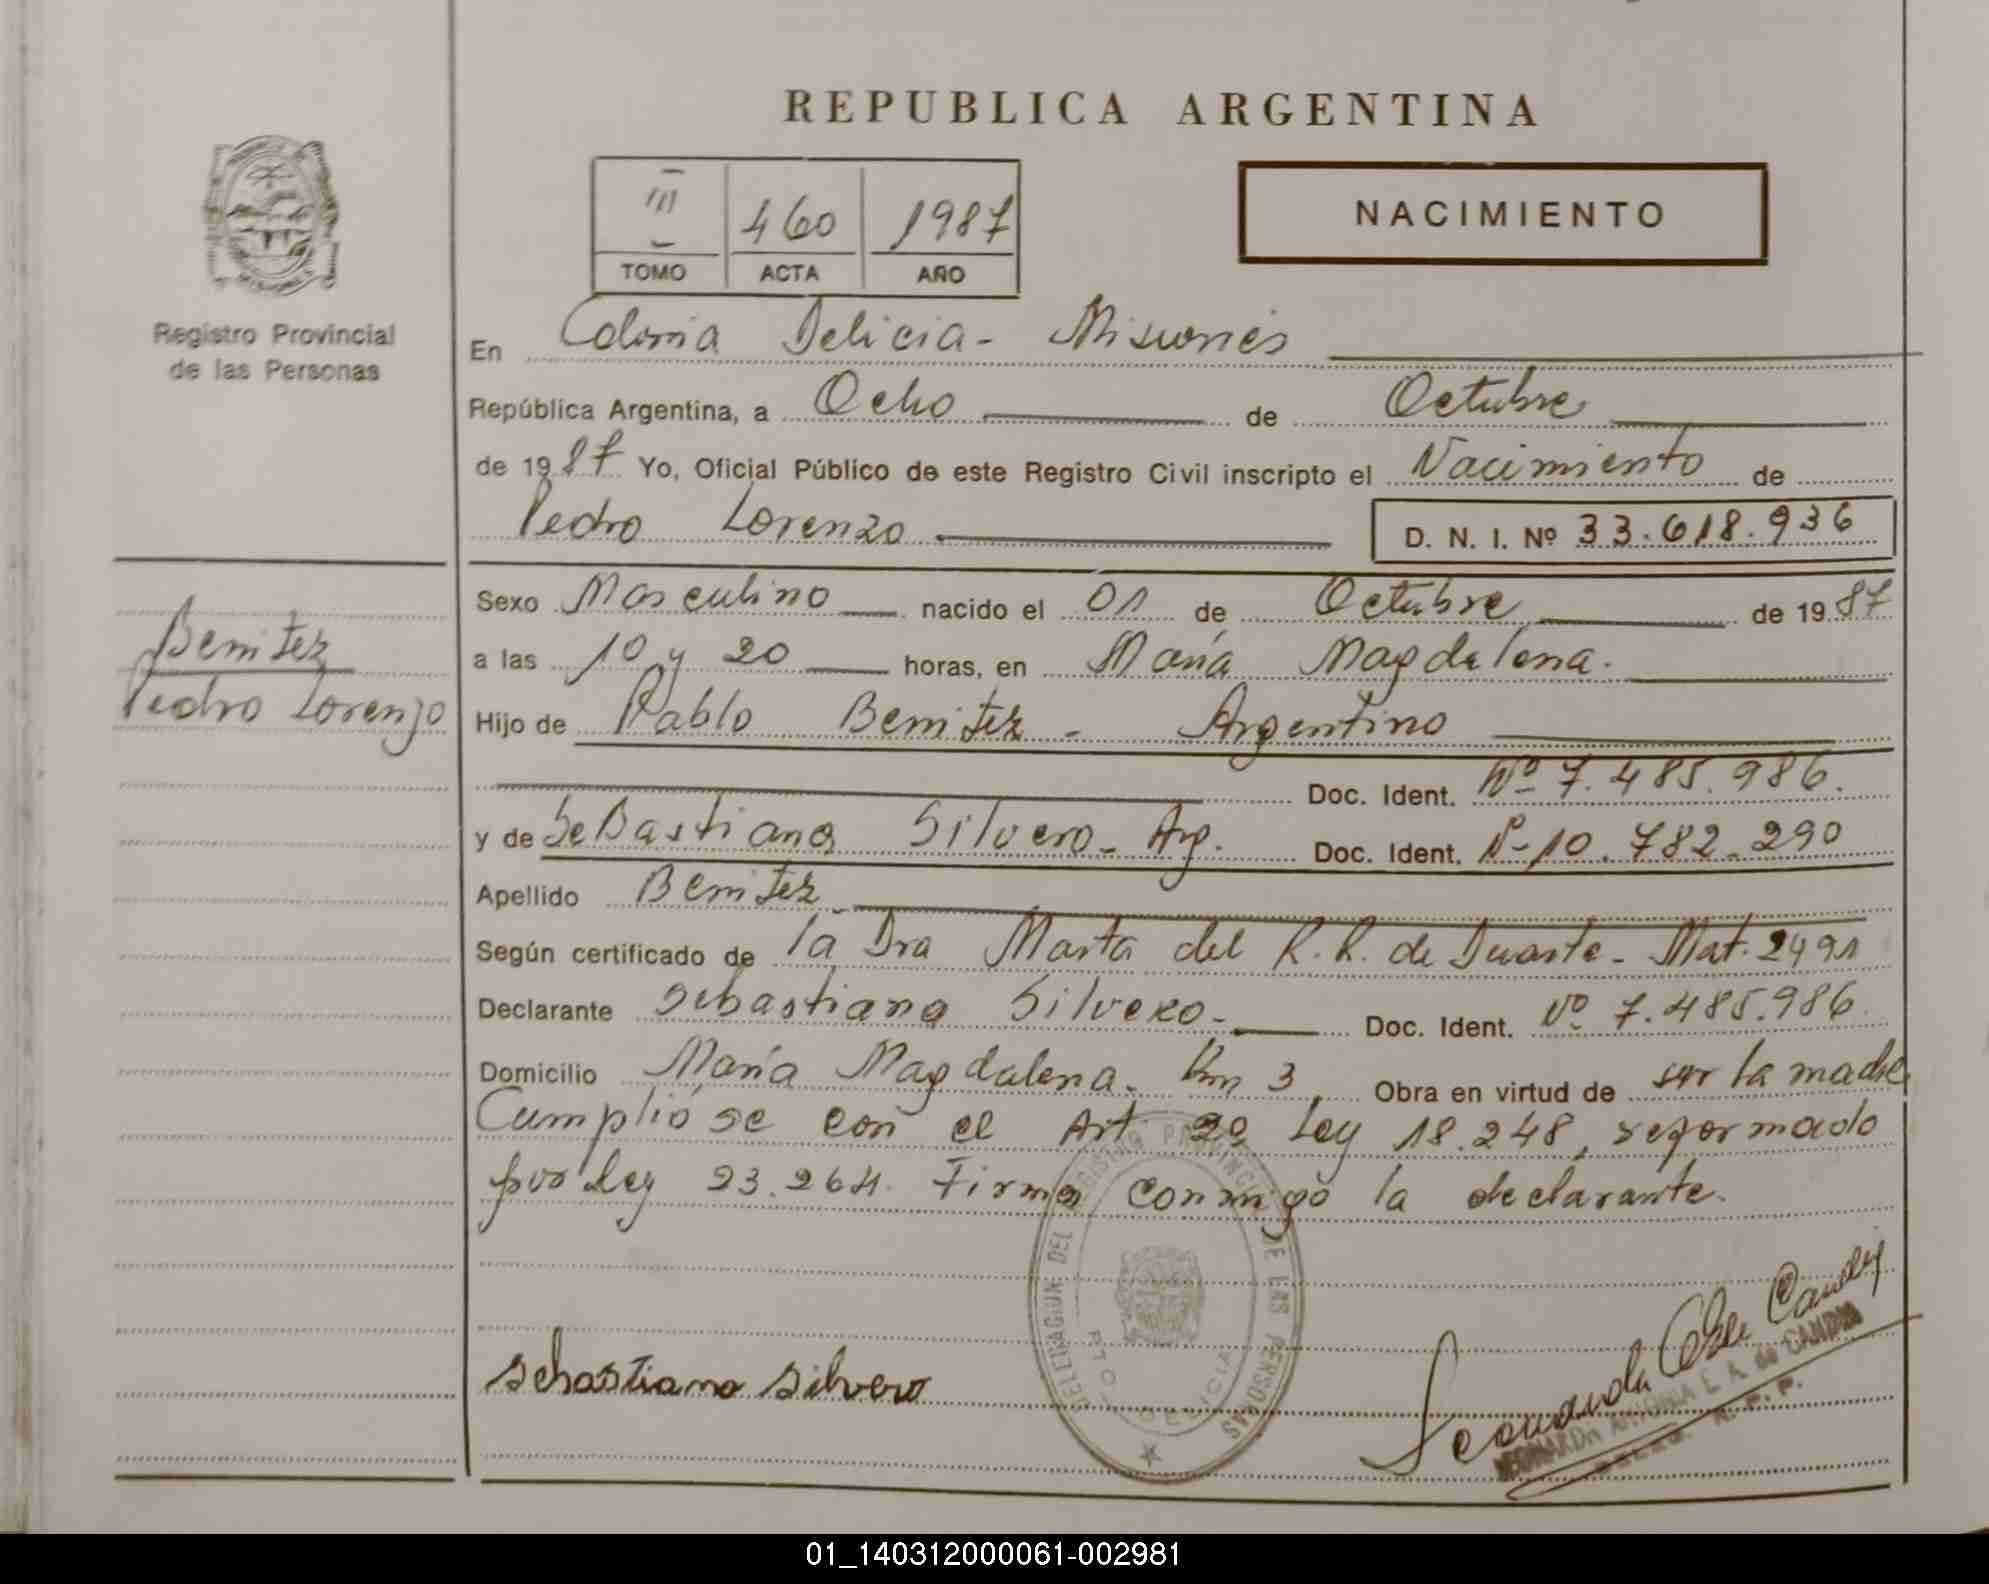 REPUBLICA ARGENTINA
III 460 1987
TOMO ACTA AÑO
NACIMIENTO
Registro Provincial
de las Personas
En Colonia Delicia - Misiones
República Argentina, a Ocho de Octubre
de 1987 Yo, Oficial Público de este Registro Civil inscripto el Nacimiento de
Pedro Lorenzo D. N. I. Nº 33.618.936
Sexo Masculino nacido el 01 de Octubre de 1987
a las 10 y 20 horas, en María Magdalena.
Hijo de Pablo Benitez - Argentino
Doc. Ident. Nº 7.485.986.
y de Sebastiana Silvero - Arg. Doc. Ident. Nº 10.782.290
Apellido Benitez
Según certificado de la Dra Marta del R. R. de Duarte - Mat. 2491
Declarante Sebastiana Silvero - Doc. Ident. Nº 7.485.986.
Domicilio María Magdalena - Km 3 Obra en virtud de ser la madre
Cumplióse con el Art. 2º Ley 18.248, reformado
por Ley 23.264. Firma conmigo la declarante.
Benitez
Pedro Lorenzo
DELEGACION DEL REGISTRO PROVINCIAL DE LAS PERSONAS
PTO. DELICIA
Sebastiana Silvero
01_140312000061-002981